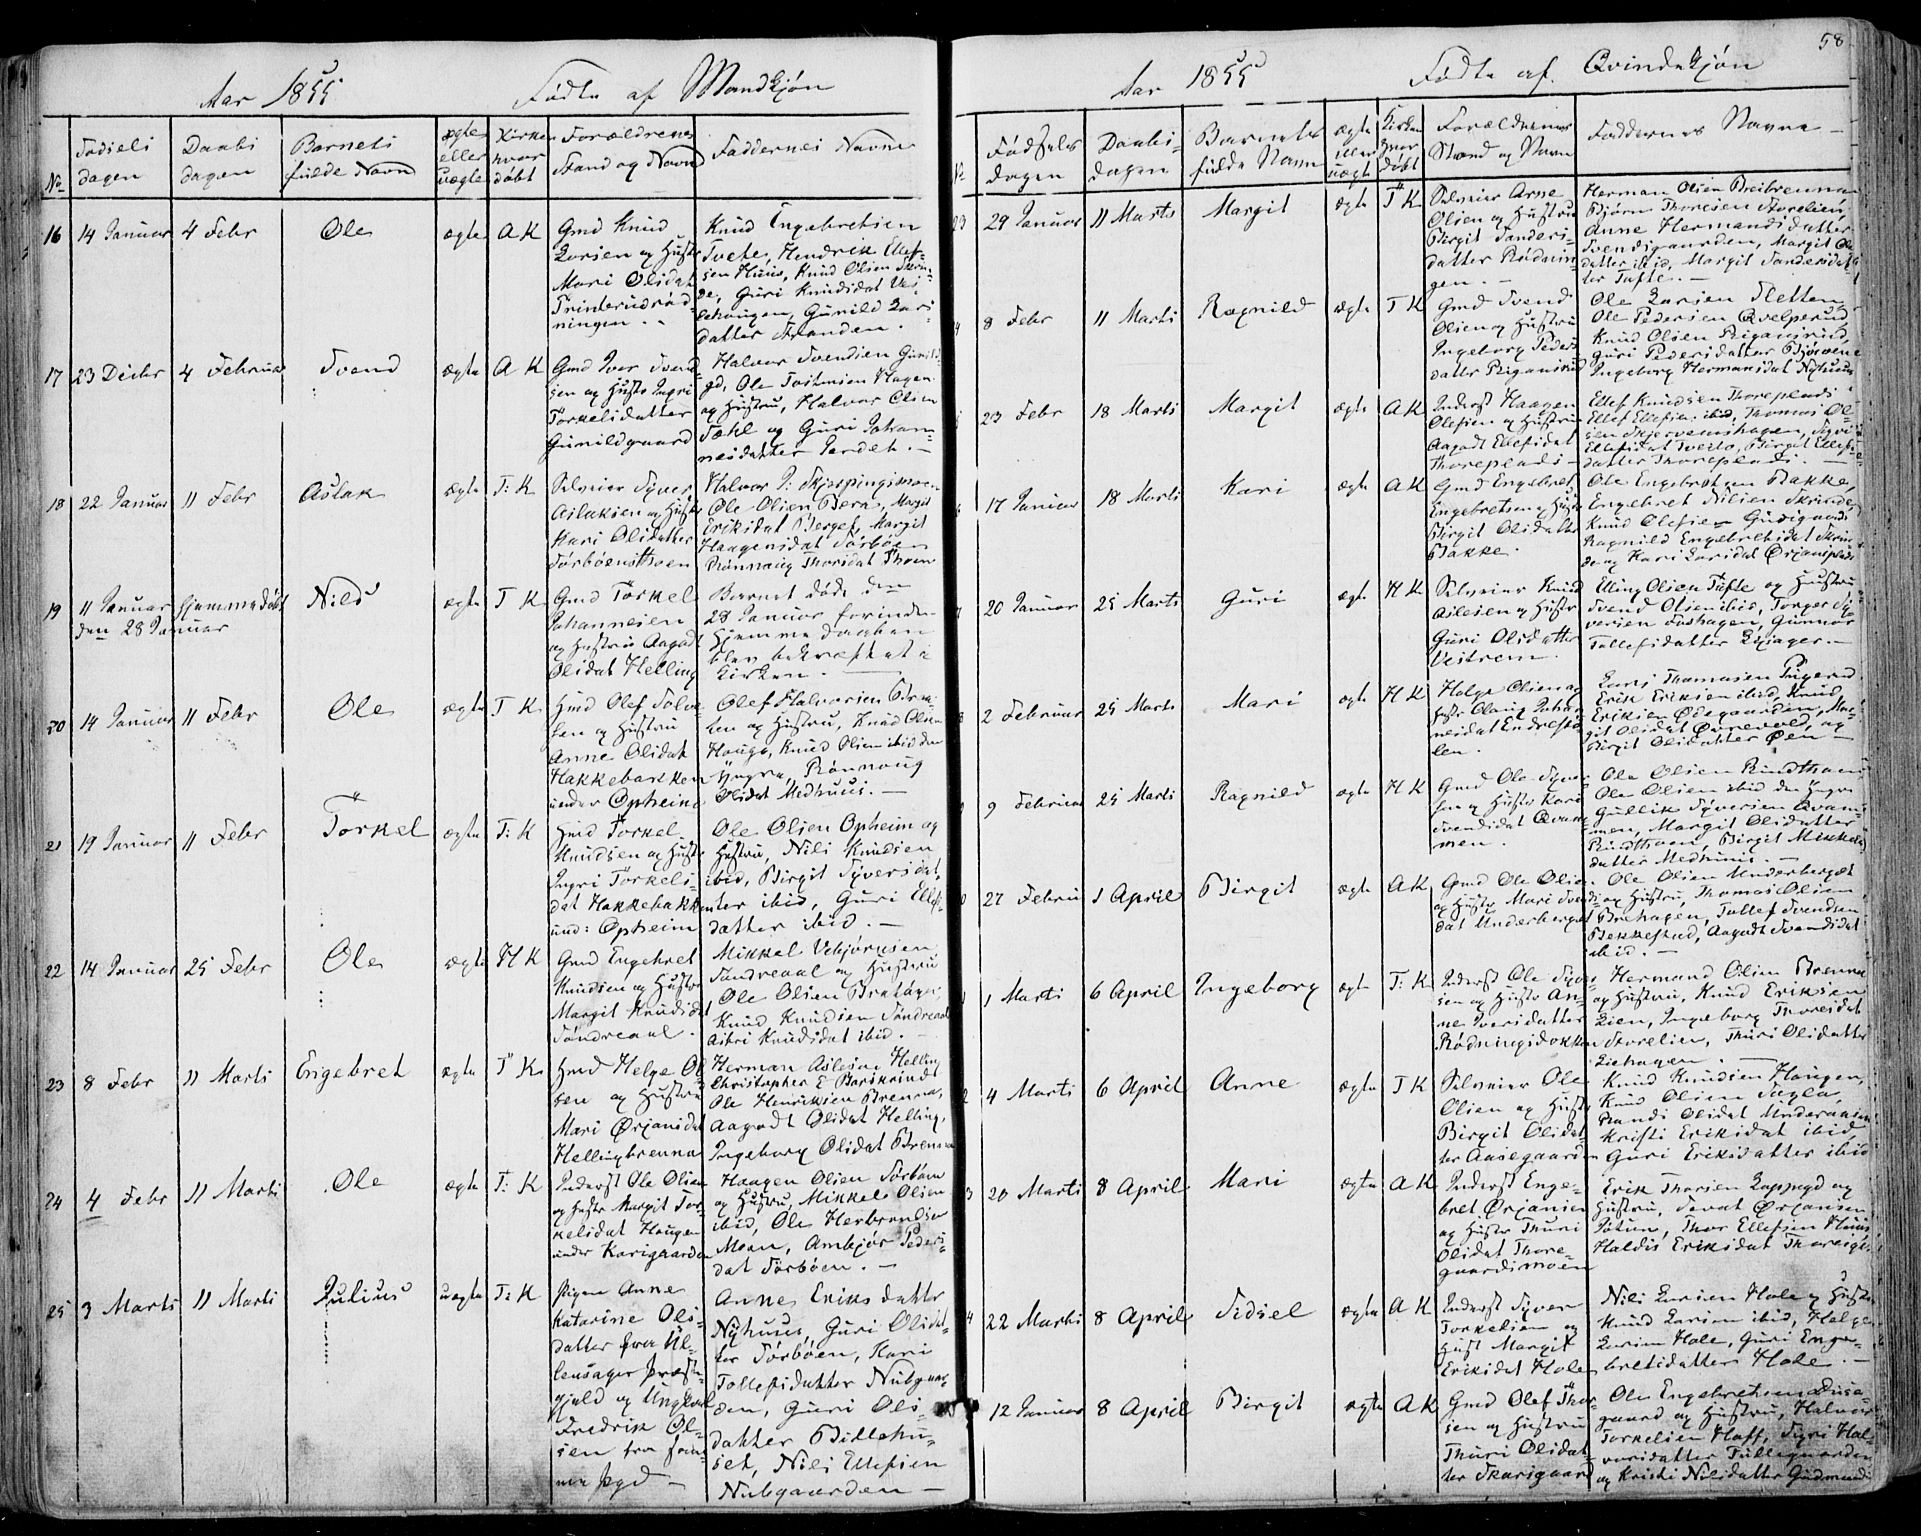 Aar 1855 Fødte af Mandkjøn
No Fødsels dagen Daabs dagen Barnets fulde Navn ægte eller uægte Kirken hvor døbt Forældrenes Stand og Navn Faddernes Navne
16 14 Januar 4 Febr Ole ægte A K Gmd Knud
Larsen og Hustr
Mari Olsdat
Trinterudrød-
ningen
Knud Engebretsen
Tvete, Hendrik Ellef-
sen Huus, Knud Olsen
Guri Knudsdat
Gunild Lars
datter Stranden
17 23 Decbr 4 Februar Svend ægte A K Gmd Iver Svend
sen og Hustr Ingri
Torkelsdatter
Gunildgaard
Halvor Svendsen Gunild-
gd, Ole Tostensen Hagen
og Hustru, Halvor Olsen
og Guri Johan-
nesdatter
18 22 Januar 11 Febr Aslak ægte T: K Selveier Syver
Aslaksen og Hustr
Kari Olsdatter
Tørbøensmoen
Ole Olsen Bera, Margit
Eriksdat Berget, Margit
Haagensdat Tørbøen
Rønnaug Thorsdat Thoen
19 11 Januar Hjemmedøbt
den 28 Januar
Nils ægte T K Gmd Torkel
Johannesen
og Hustru Aagodt
Olsdat Helling
Barnet døde den
28 Januar forinden
Hjemmedaaben
blev bekræftet i
Kirken.
20 14 Januar 11 Febr Ole ægte T K Hmd Olef
sen og Hustru
Anne Olsdat
Hakkebakken
under Opheim
Olef Halvorsen
sen og Hustru, Knud Olsen
Hauge, Knud Olsen ibid den
Yngre, Rønnoug
Olsdat Medhuus.
21 19 Januar 11 Febr Torkel ægte T: K Hmd Torkel
Knudsen og Hustr
Ingri Torkels-
dat Hakkebakken
und: Opheim
Ole Olsen Opheim og
Hustru, Nils Knudsen
ibid, Birgit Syversdat-
ter ibid, Guri Ellefs
datter ibid.
22 14 Januar 25 Febr Ole ægte H K Gmd Engebret
Knudsen og Hustr
Margit Knudsdat
Søndreaal.
Mikkel Vebjørnsen
Søndreaal og Hustru
Ole Olsen
Knud Knudsen Søndreaal
Knudsdat ibid.
23 8 Febr 11 Marts Engebret ægte T K Hmd Helge Ol
sen og Hustru
Mari Ørjansdat
Hellingbrenna
Herman Aslesen Helling
Christopher E
Ole Henriksen Brenna,
Aagodt Olsdat Helling,
Ingeborg Olsdat Brenna
24 4 Febr 11 Marts Ole ægte T: K Inderst Ole Olsen
og Hustr Margit Tor-
kelsdat Haugen
under Karigaarden
Haagen Olsen Tørbøen
og Hustru, Mikkel Olsen
ibid, Ole Herbrandsen
Moen, Ambjør Peders
dat Tørbøen.
25 3 Marts 11 Marts Julius uægte T: K Pigen Anne
Katarine Ols-
datter fra Ul-
lensager Præste-
gjeld og Ungkarl
Fredrik Ol-
sen fra sam-
me Bygd
Anne Eriksdatter
Nyhuus, Guri Olsdat-
ter Tørbøen, Kari
Tollefsdatter Nubgaar-
den, Guri Ols
datter Bittehu-
set, Nils Ellefsen
Nubgaarden
58
Aar 1855 Fødte af Qvindekjøn
No Fødsels dagen Daabs-dagen Barnets fulde Navn ægte eller uægte Kirken hvor døbt Forældrenes Stand og Navn Faddernes Navne
29 Januar 11 Marts Margit ægte T K Selveier Arne
Olsen og Hustru
Birgit Sanders-
datter Rødnin-
gen.
Herman Olsen Breibrenna
Bjørn Thoresen Storelien,
Anne Hermandsdatter
Svendsgaarden, Margit Ols
datter ibid, Margit Sandersdat-
ter Tufte.
8 Febr 11 Marts Ragnild ægte T K Gmd Svend
Olsen og Hustru
Ingeborg Peders
datter
Ole Larsen Sletten
Ole Pedersen Qvelprud
Knud Olsen
Guri Pedersdatter
Ingeborg Hermansdat Nyhuus
23 Febr 18 Marts Margit ægte A K Inderst Haagen
Olefsen og Hustru
Aagodt Ellefsdat
Thoreplads
Ellef Knudsen Thoreplads
Ellef Ellefsen ibid, Thomas Ol-
sen
Ellefsdat Tveito, Birgit Ellefs-
datter Thoreplads.
17 Januar 18 Marts Kari ægte A K Gmd Engebret
Engebretsen og Hustr
Birgit Olsdatter
Bakke.
Ole Engebretsen Bakke,
Engebret Nilsen Skrinde,
Knud Olefsen
Ragnild Engebretsdat Skrin-
de og Kari Larsdat Ørjansplads
20 Januar 25 Marts Guri ægte H K Selveier Knud
Aslesen og Hustr
Guri Olsdatter
Vestrem
Elling Olsen Tufte og Hustru
Svend Olsen ibid, Torger Sy-
versen, Gunnor
Tollefsdatter
2 Februar 25 Marts Mari ægte H K Helge Olsen og
Hustr Johan-
nesdat Endrestø-
len.
Lars Thomasen
Erik Eriksen ibid, Knud
Eriksen Ødegaarden, Mar-
git Olsdat og
Birgit Olsdatter Øen
9 Februar 25 Marts Ragnild ægte H K Gmd Ole Syver-
sen og Hustr Kari
Svendsdat Qvam-
men.
Ole Olsen
Ole Olsen ibid den Yngre
Gullik Syversen Qvam-
men, Margit Olsdatter
Birgit Mikkels
datter Medhuus.
27 Februar 1 April Birgit ægte A K Gmd Ole Olsen
og Hustr Mari Svends-
dat Underberget
Ole Olsen Underberget
og Hustru, Thomas Olsen
Tollef Svendsen
Bekkestad, Aagodt Svendsdat
ibid.
1 Marts 6 April Ingeborg ægte T: K Inderst Ole Syver
sen og Hustr An-
ne Iversdatter
Rødningsdokken
Hermand Olsen Brenna
og Hustru, Knud Eriksen
Lien, Ingeborg Thoresdat
Storelien, Thuri Olsdatter
Liehagen.
4 Marts 6 April Anne ægte T K Selveier Ole
Olsen og Hustr
Birgit Olsdat-
ter Aasegaarden
Knud Knudsen Haugen,
Knud Olsen
Randi Olsdat Underaasen
Kristi Eriksdat ibid
Guri Eriksdatter ibid
20 Marts 8 April Mari ægte A K Inderst Enge-
bret Ørjansen
og Hustr Thuri
Olsdat Thore-
gaardsmoen
Erik Thorsen og
Hustru, Ørjansen
Thor Ellefsen Huus
Haldis Eriksdat
22 Marts 8 April Sidsel ægte A K Inderst Syver
Torkelsen og
Hust Margit
Eriksdat Hole
Nils Larsen Hole og Hustr
Knud Larsen ibid, Helge
Larsen Hole, Guri Enge-
bretsdatter Hole.
12 Januar 8 April Birgit ægte A K Gmd Olef Thor-
sen og Hustru
Thuri Olsdat-
ter Skarsgaard
Ole Engebretsen
gaard og Hustru, Halvor
Torkelsen Hoff, Syri Hal-
vorsdatter
og Kristi Nilsdatter